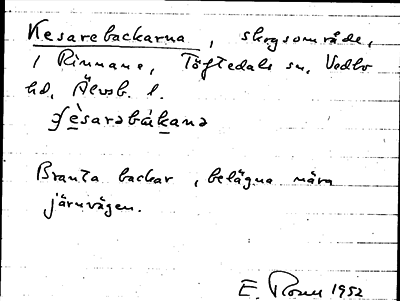 Kesarebackarna, skogsområde,
i Rinnane, Töftedals sn, Vedbo
hd, Älvsb. l.
Branta backar, belägna nära
järnvägen.
E. Rosen 1952